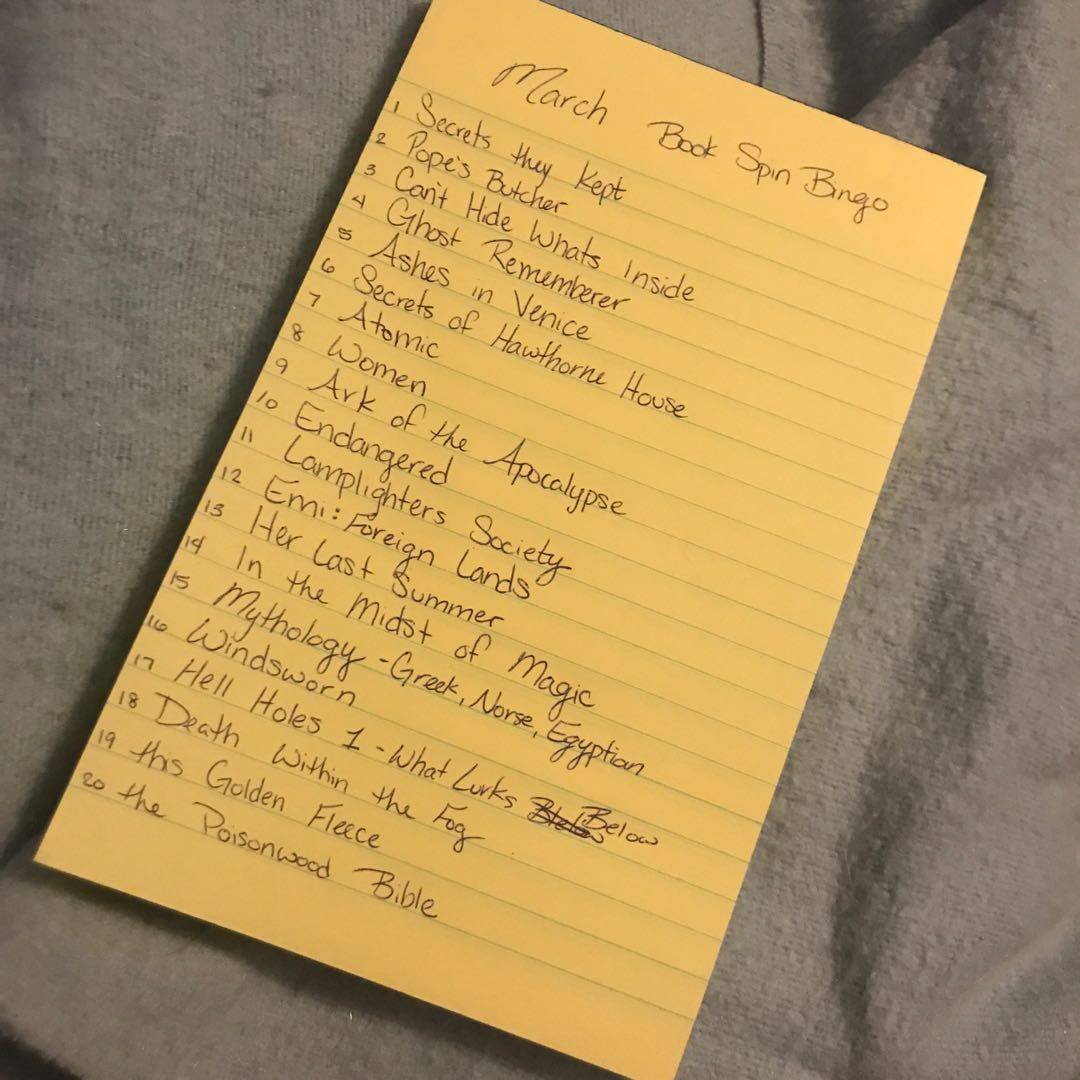 March Book Spin Bingo
1 Secrets they Kept
2 Pope's Butcher
3 Can't Hide Whats Inside
4 Ghost Rememberer
5 Ashes in Venice
6 Secrets of Hawthorne House
7 Atomic
8 Women
9 Ark of the Apocalypse
10 Endangered
11 Lamplighters Society
12 Emi: Foreign Lands
13 Her Last Summer
14 In the Midst of Magic
15 Mythology - Greek, Norse, Egyptian
16 Windsworn
17 Hell Holes 1 - What Lurks Below
18 Death Within the Fog
19 this Golden Fleece
20 the Poisonwood Bible